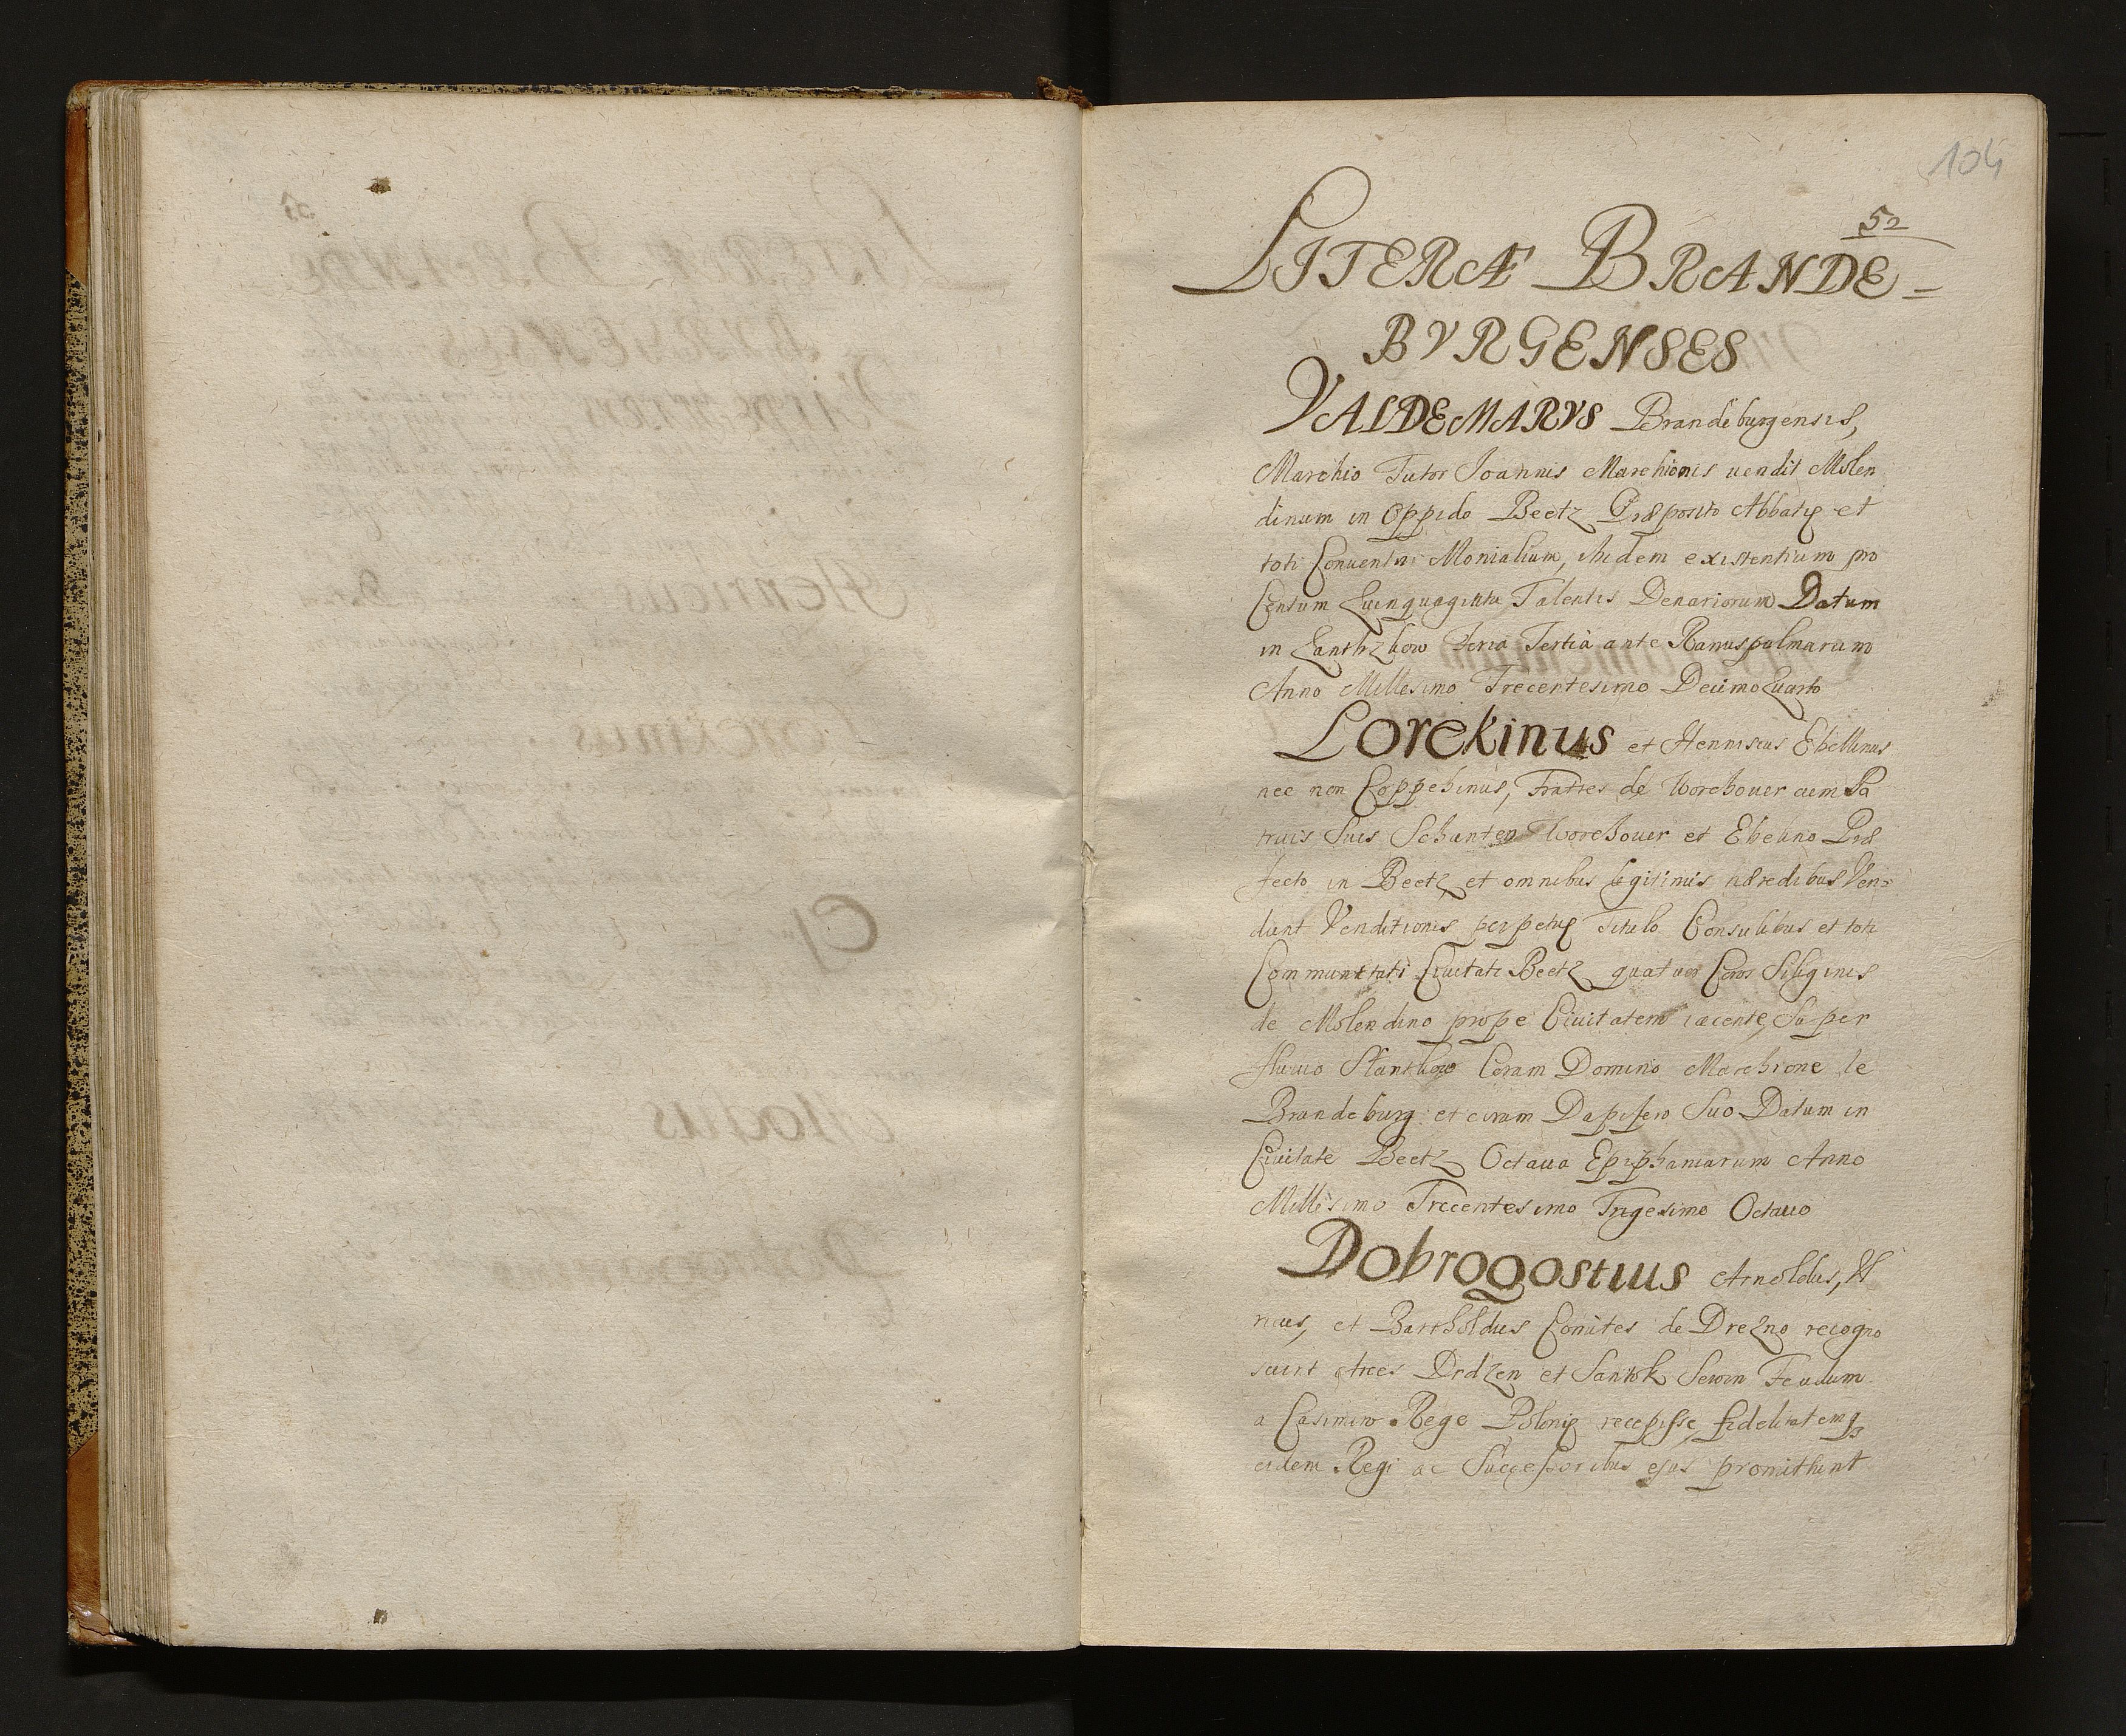 104
52
LITERÆ BRANDE=
BVRGENSES
VALDEMARVS Brandeburgensis,
Marchio Tutor Joannis Marchionis uendit Molen
dinum in Oppido Beetz Præposito Abbatissę et
toti Conuentui Monialium, ibidem existentium pro
Centum Quinquaginta Talentis Denariorum Datum
in Feria Tertia ante Ramuspalmarum
Anno Millesimo Trecentesimo Decimo Quarto
Lorekinus et Henniscus Ebellinus
nec non Coppehinus, Fratres de Worchouer cum Pa
truis Suis Schanten Worchouer et Ebelino Præ
fecto in Beetz et omnibus legitimis hæredibus Ven=
dunt Venditionis perpetuę Titulo Consulibus et toti
Communitati Ciuitati Beetz quatuor Coros Siliginis
de Molendino prope Ciuitatem iacente, Super
fluuio Coram Domino Marchione de
Brandeburg et coram Dapifero Suo Datum in
Ciuitate Beetz Octaua Epiphaniarum Anno
Millesimo Trecentesimo Trigesimo Octauo
Dobrogostius Arnoldus, Vl
ricus, et Bartholdus Comites de Drezno recogno
scunt Arces Drdzen et Santok Sewin Feudum
a Casimiro Rege Polonię recepisse, fidelitatemq3
eidem Regi ac Successoribus ejus promittunt